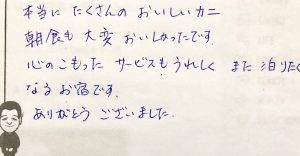 本当に たくさんの おいしい カニ
朝食も 大変 おいしかったです。
心のこもった サービスも うれしく また 泊りたく
なる お宿です。
ありがとう ございました。